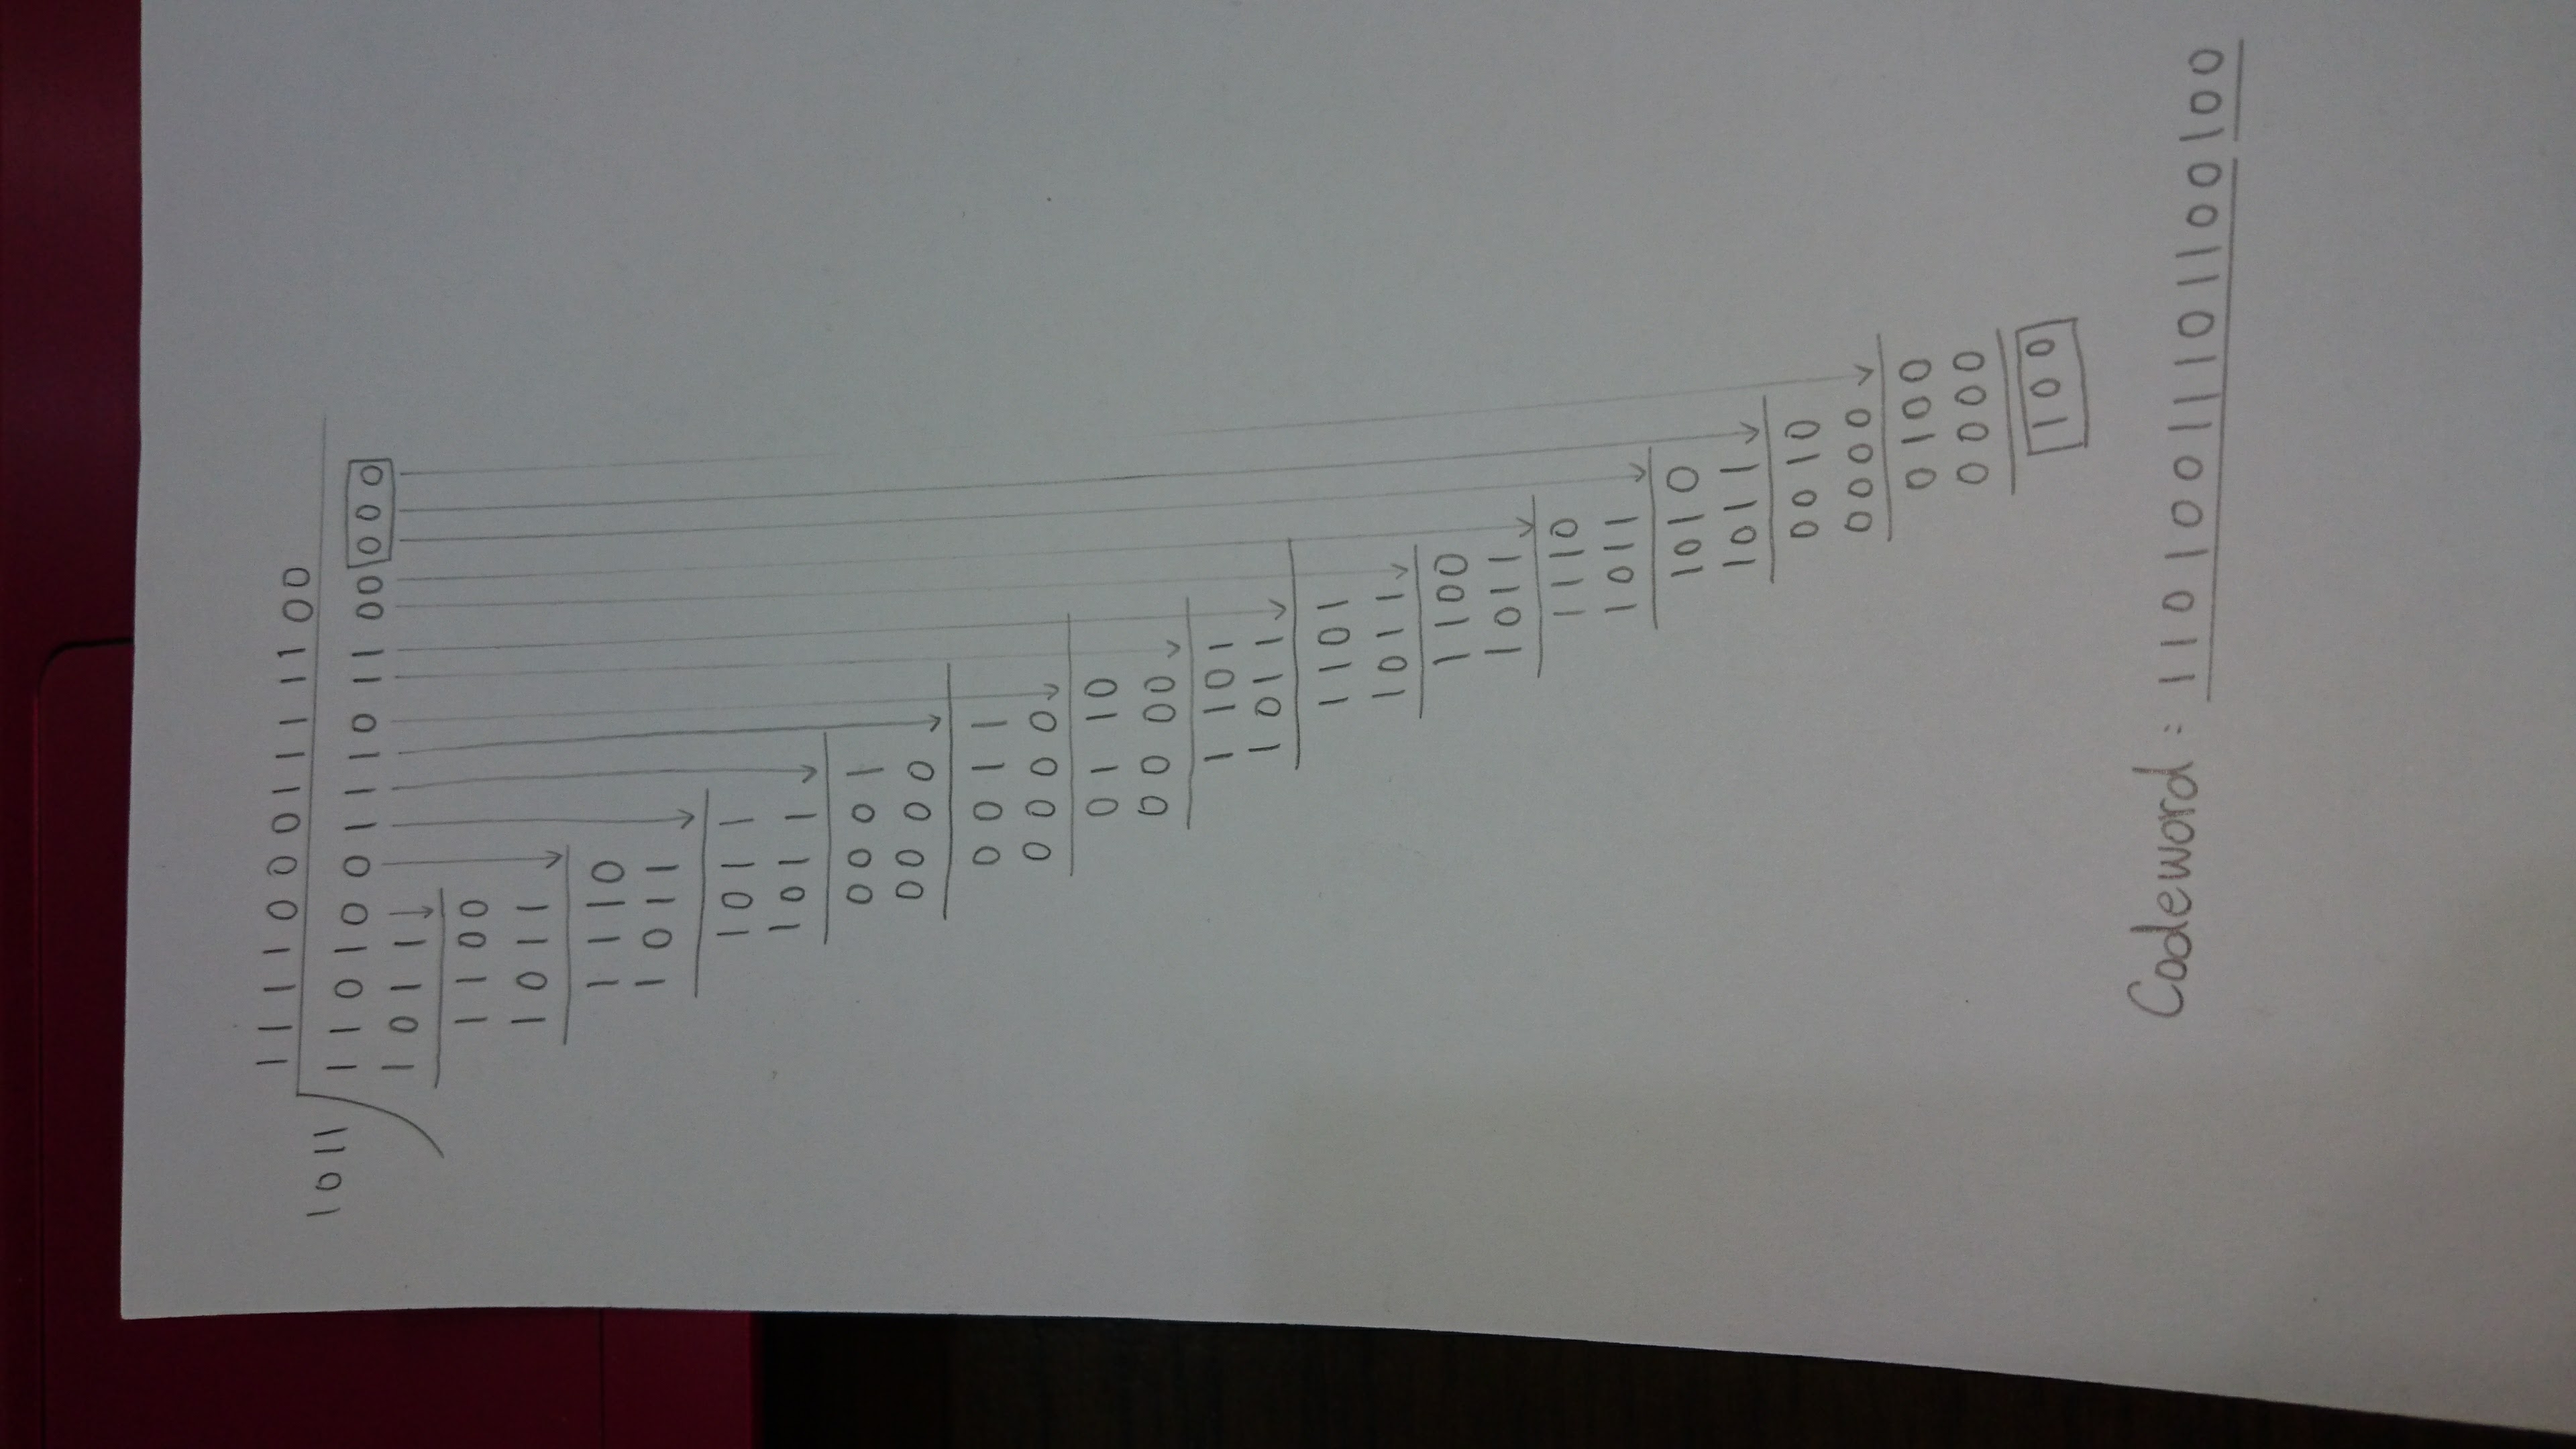 11110001111100
1011 11010011101100000
1011
1100
1011
1110
1011
1011
1011
0001
0000
0011
0000
0110
0000
1101
1011
1101
1011
1100
1011
1110
1011
1010
1011
0010
0000
0100
0000
100
Codeword : 11010011101100100